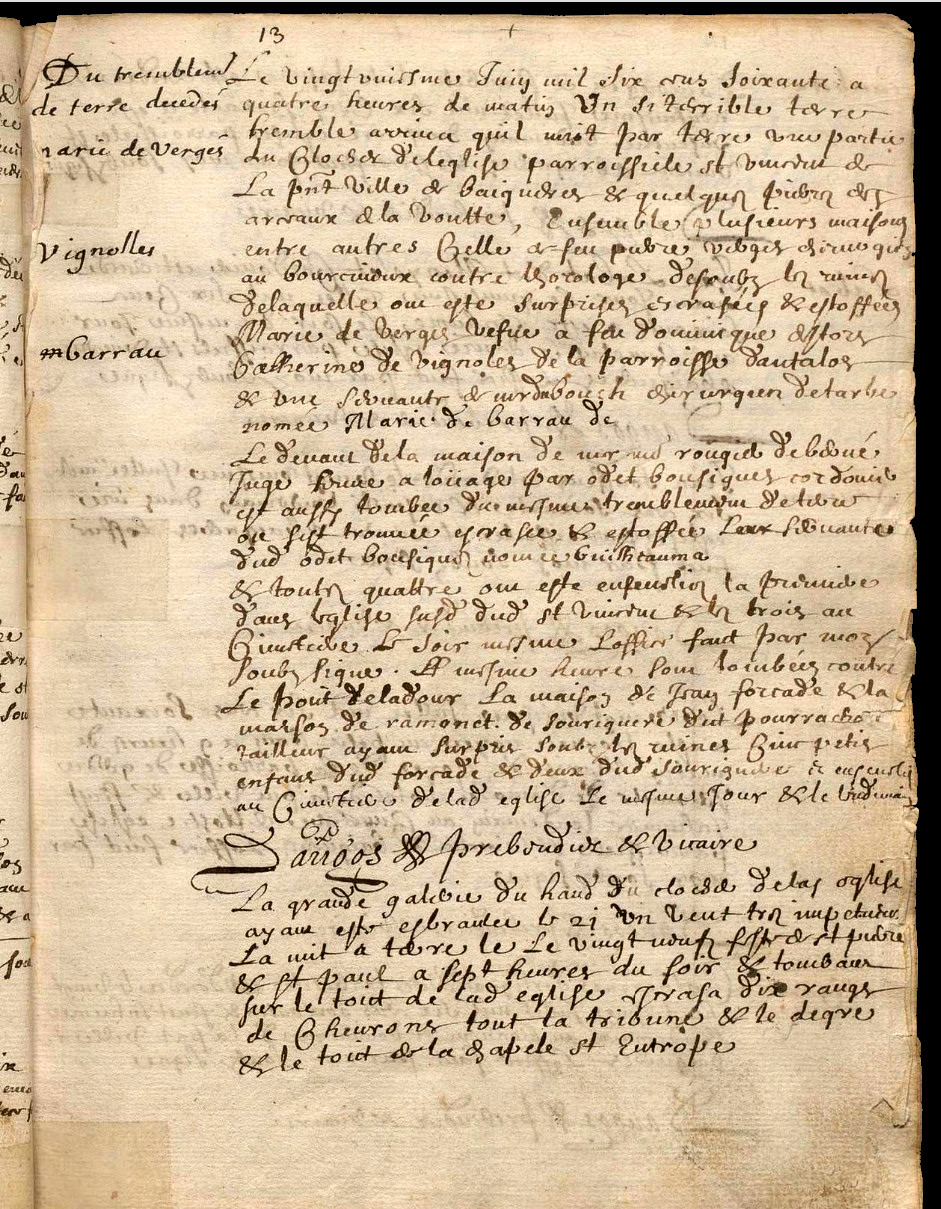 13
Du tremblemt
de terre decedés
marie de Verges
Vignolles
m barrau
Le vingt uniesme Juin mil six cens soixante a
quatre heures de matin Un si terrible terre
tremble arriva quil mist par terre une partie
du Clocher de leglise parroissiele st vincent de
La pnt Ville de baigneres & quelques pierres des
arceaux de la voutte, Ensemble plusieurs maisons
entre autres Celle de feu pierre verges
au bourcmieux contre lhorologe desoubz les ruines
de laquelle ont esté surprises escrasées & estoffées
Marie de Verges vefve a feu dominicque
Catherine de Vignoles de la parroisse dantalos
& une servante de mr dubouch chirurgien de tarbe
nomée Marie de barrau de
Le devant de la maison de mr me
Juge tenue a louage par odet bousigues cordonie
est aussy tombée du mesme tremblement de terre
ou sest trouvée escrasée & estoffée Leur servante
dud odet bousigues nomée Guilheauma
& toutes quattre ont esté ensevelies la premiere
dans leglise susd dud st vincent & les trois au
Cimetiere Le soir mesme Loffice fait par moy
soubz signe. Et mesme heure sont tombées contre
Le pont de ladour La maison de Jean forcade & la
maison de ramonet de sourigues dit
tailleur ayant surpris soubz les ruines Cinc petis
enfans dud forcade & deux dud sourigues & ensevelis
au Cimetiere de lad eglise Le mesme Jour & le lendemain
Dangos Prebendier & vicaire
La grande galerie du haut du clocher de lad eglise
ayant esté esbranlee le 21 Un Vent tres impetueux
La mit a terre le Le vingt neufz feste de st pierre
& st paul a sept heures du soir & tombant
sur le toict de lad eglise escrasa dix ranges
de Chevrons tout la tribune & le degre
& le toict de la chapele st Eutrope